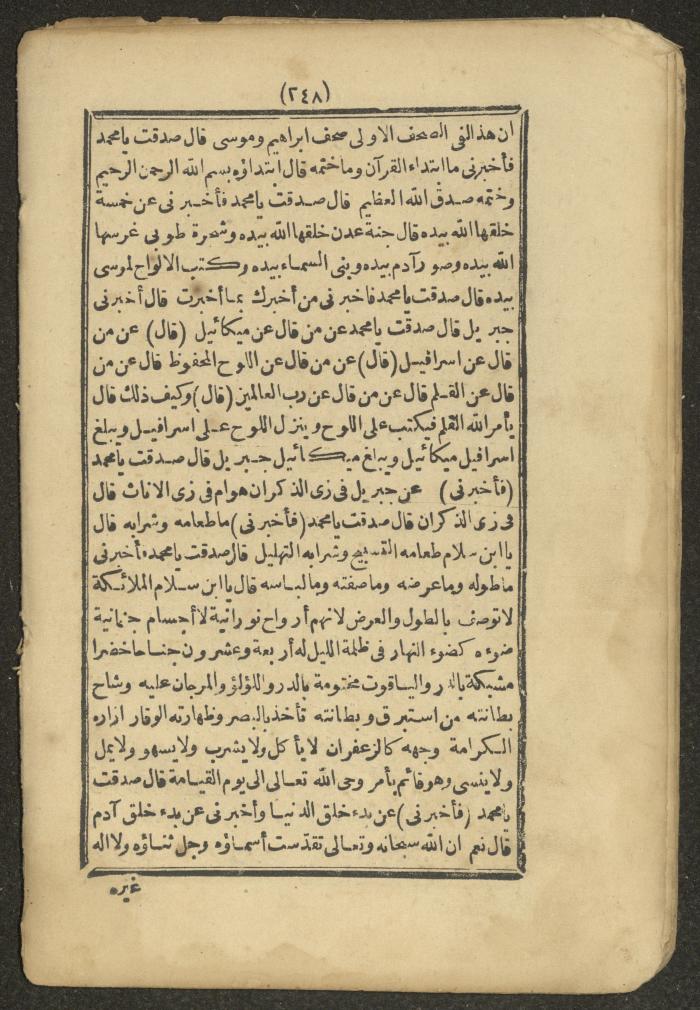 (٢٤٨)
ان هذا لفى الصحف الاولى صحف ابراهيم وموسى قال صدقت يا محمد
فأخبرنى ما ابتداء القرآن وما ختمه قال ابتداؤه بسم الله الرحمن الرحيم
وختمه صدق الله العظيم قال صدقت يا محمد فأخبرنى عن خمسة
خلقها الله بيده قال جنة عدن خلقها الله بيده وشجرة طوبى غرسها
الله بيده وصور آدم بيده وبنى السماء بيده وكتب الالواح لموسى
بيده قال صدقت يا محمد فاخبرنى من أخبرك بما أخبرت قال أخبرنى
جبريل قال صدقت يا محمد عن من قال عن ميكائيل (قال) عن من
قال عن اسرافيل (قال) عن من قال عن اللوح المحفوظ قال عن من
قال عن القلم قال عن من قال عن رب العالمين (قال) وكيف ذلك قال
يأمر الله القلم فيكتب على اللوح وينزل اللوح على اسرافيل ويبلغ
اسرافيل ميكائيل ويبلغ ميكائيل جبريل قال صدقت يا محمد
(فأخبرنى) عن جبريل فى زى الذكران هو ام فى زى الاناث قال
فى زى الذكران قال صدقت يا محمد (فأخبرنى) ما طعامه وشرابه قال
يا ابن سلام طعامه التسبيح وشرابه التهليل قال صدقت يا محمد أخبرنى
ما طوله وما عرضه وما صفته وما لباسه قال يا ابن سلام الملائكة
لا توصف بالطول والعرض لانهم أرواح نورانية لا أجسام جثمانية
ضوءه كضوء النهار فى ظلمة الليل له أربعة وعشرون جناحا خضرا
مشبكة بالدر والياقوت مختومة بالدر واللؤلؤ والمرجان عليه وشاح
بطانته من استبرق وبطانته تأخذ بالبصر وظهارته الوقار ازاره
الكرامة وجهه كالزعفران لا يأكل ولا يشرب ولا يسهو ولا يمل
ولا ينسى وهو قائم بأمر وحى الله تعالى الى يوم القيامة قال صدقت
يا محمد (فأخبرنى) عن بدء خلق الدنيا وأخبرنى عن بدء خلق آدم
قال نعم ان الله سبحانه وتعالى تقدّست أسماؤه وجل ثناؤه ولا اله
غيره